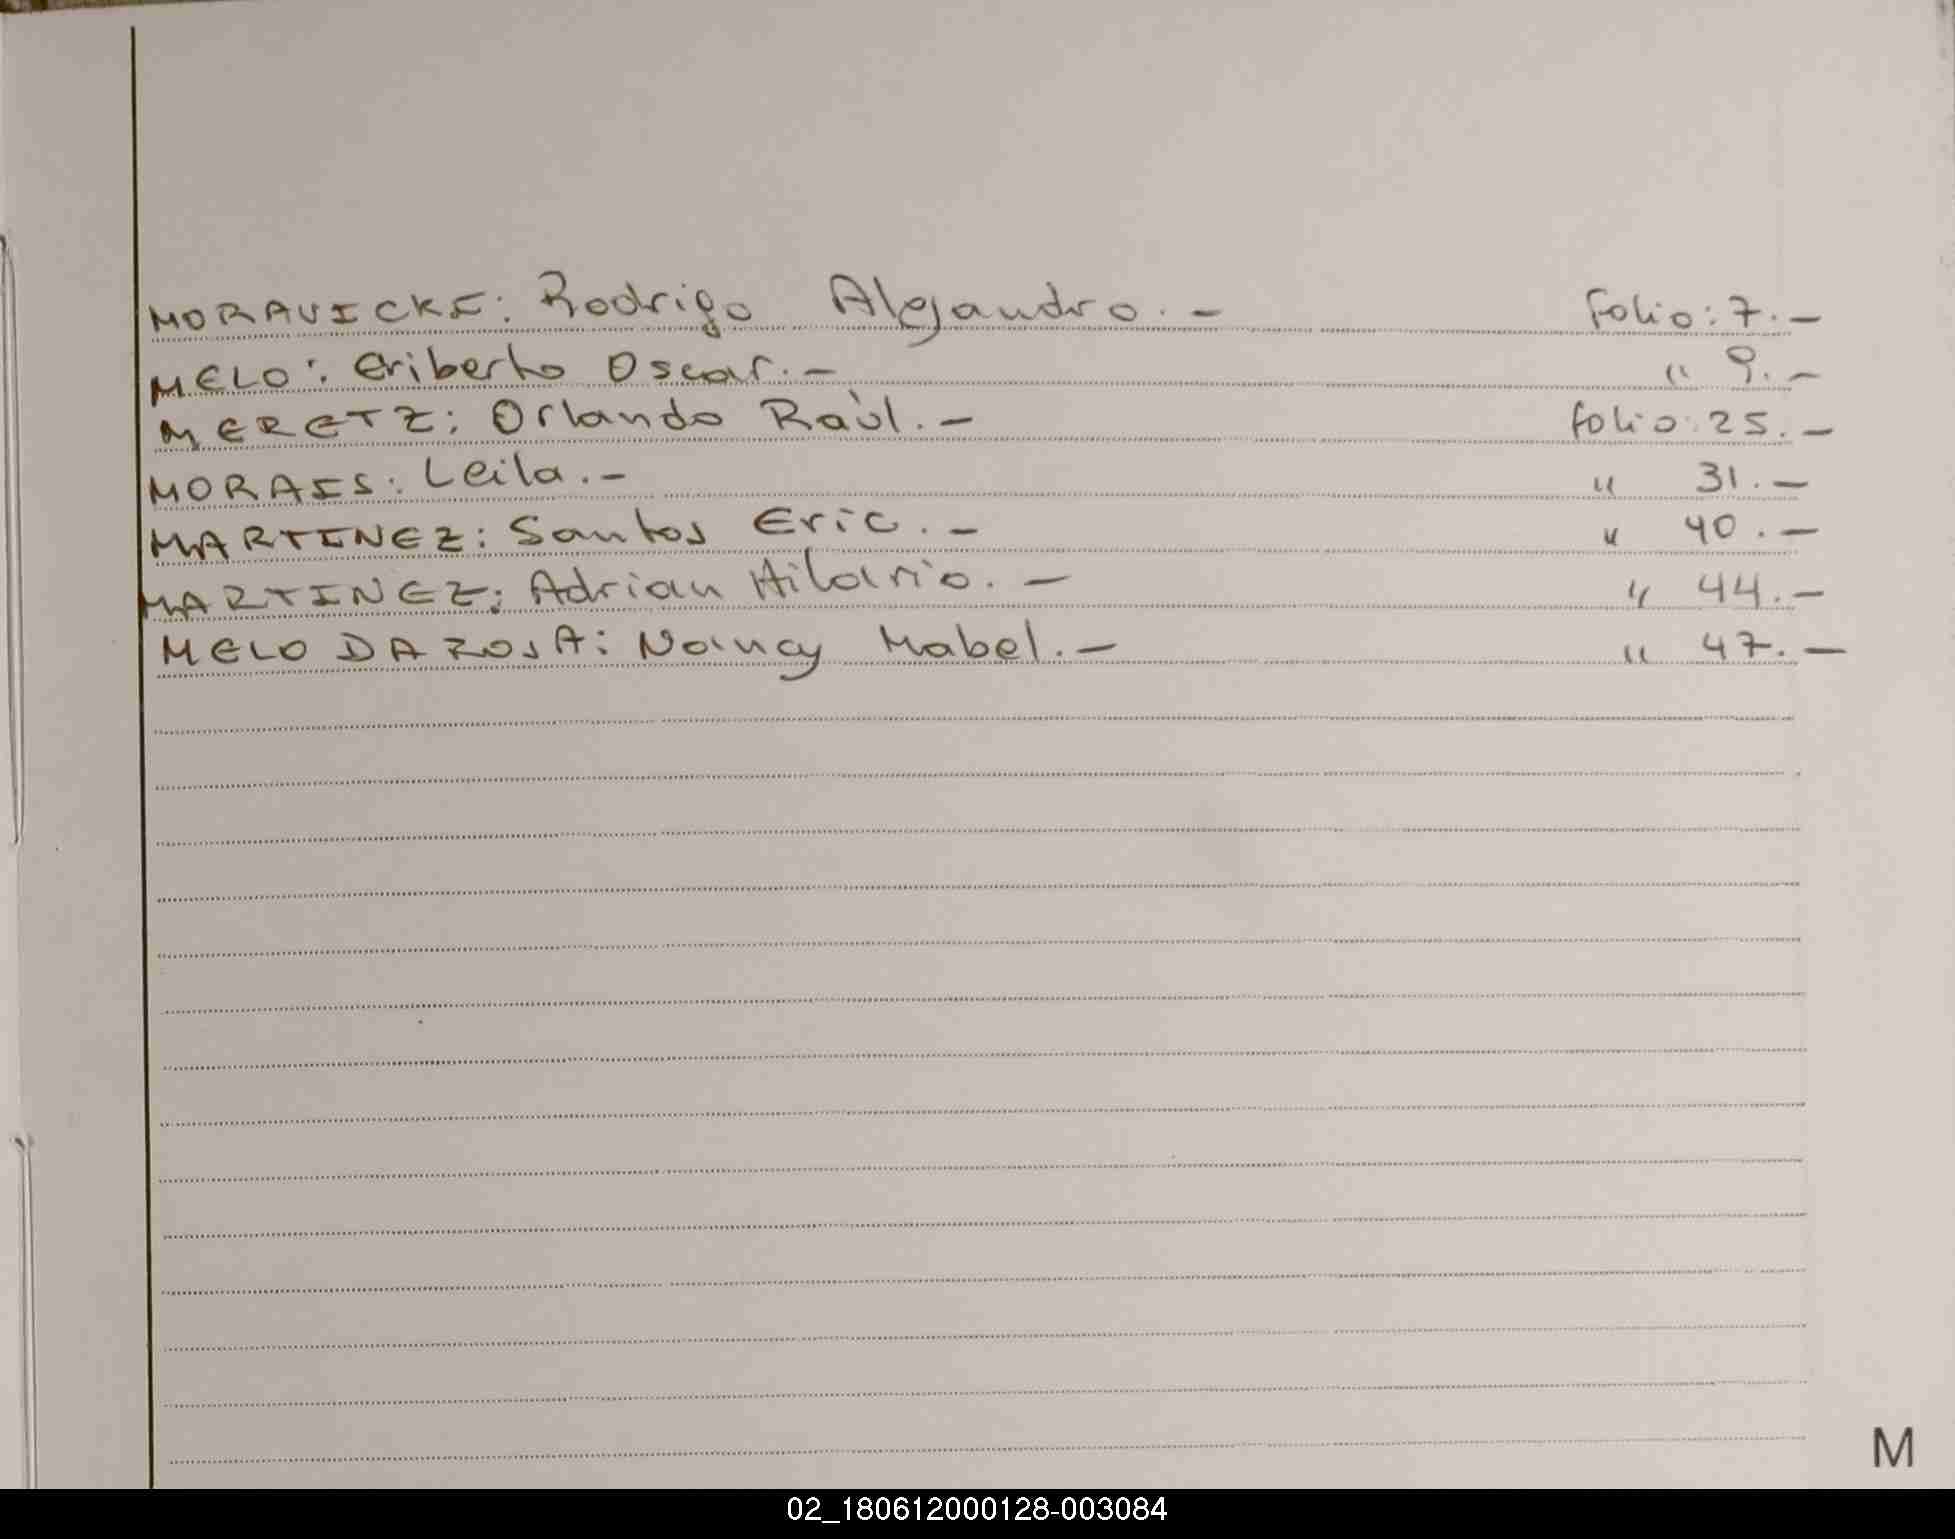 MORAVICKE: Rodrigo Alejandro.- Folio: 7.-
MELO: Eriberto Oscar.- " 9.-
MERETZ: Orlando Raúl.- folio: 25.-
MORAES: Leila.- " 31.-
MARTINEZ: Santos Eric.- " 40.-
MARTINEZ: Adrian Hilario.- " 44.-
MELO DA ROSA: Nancy Mabel.- " 47.-
M
02_180612000128-003084